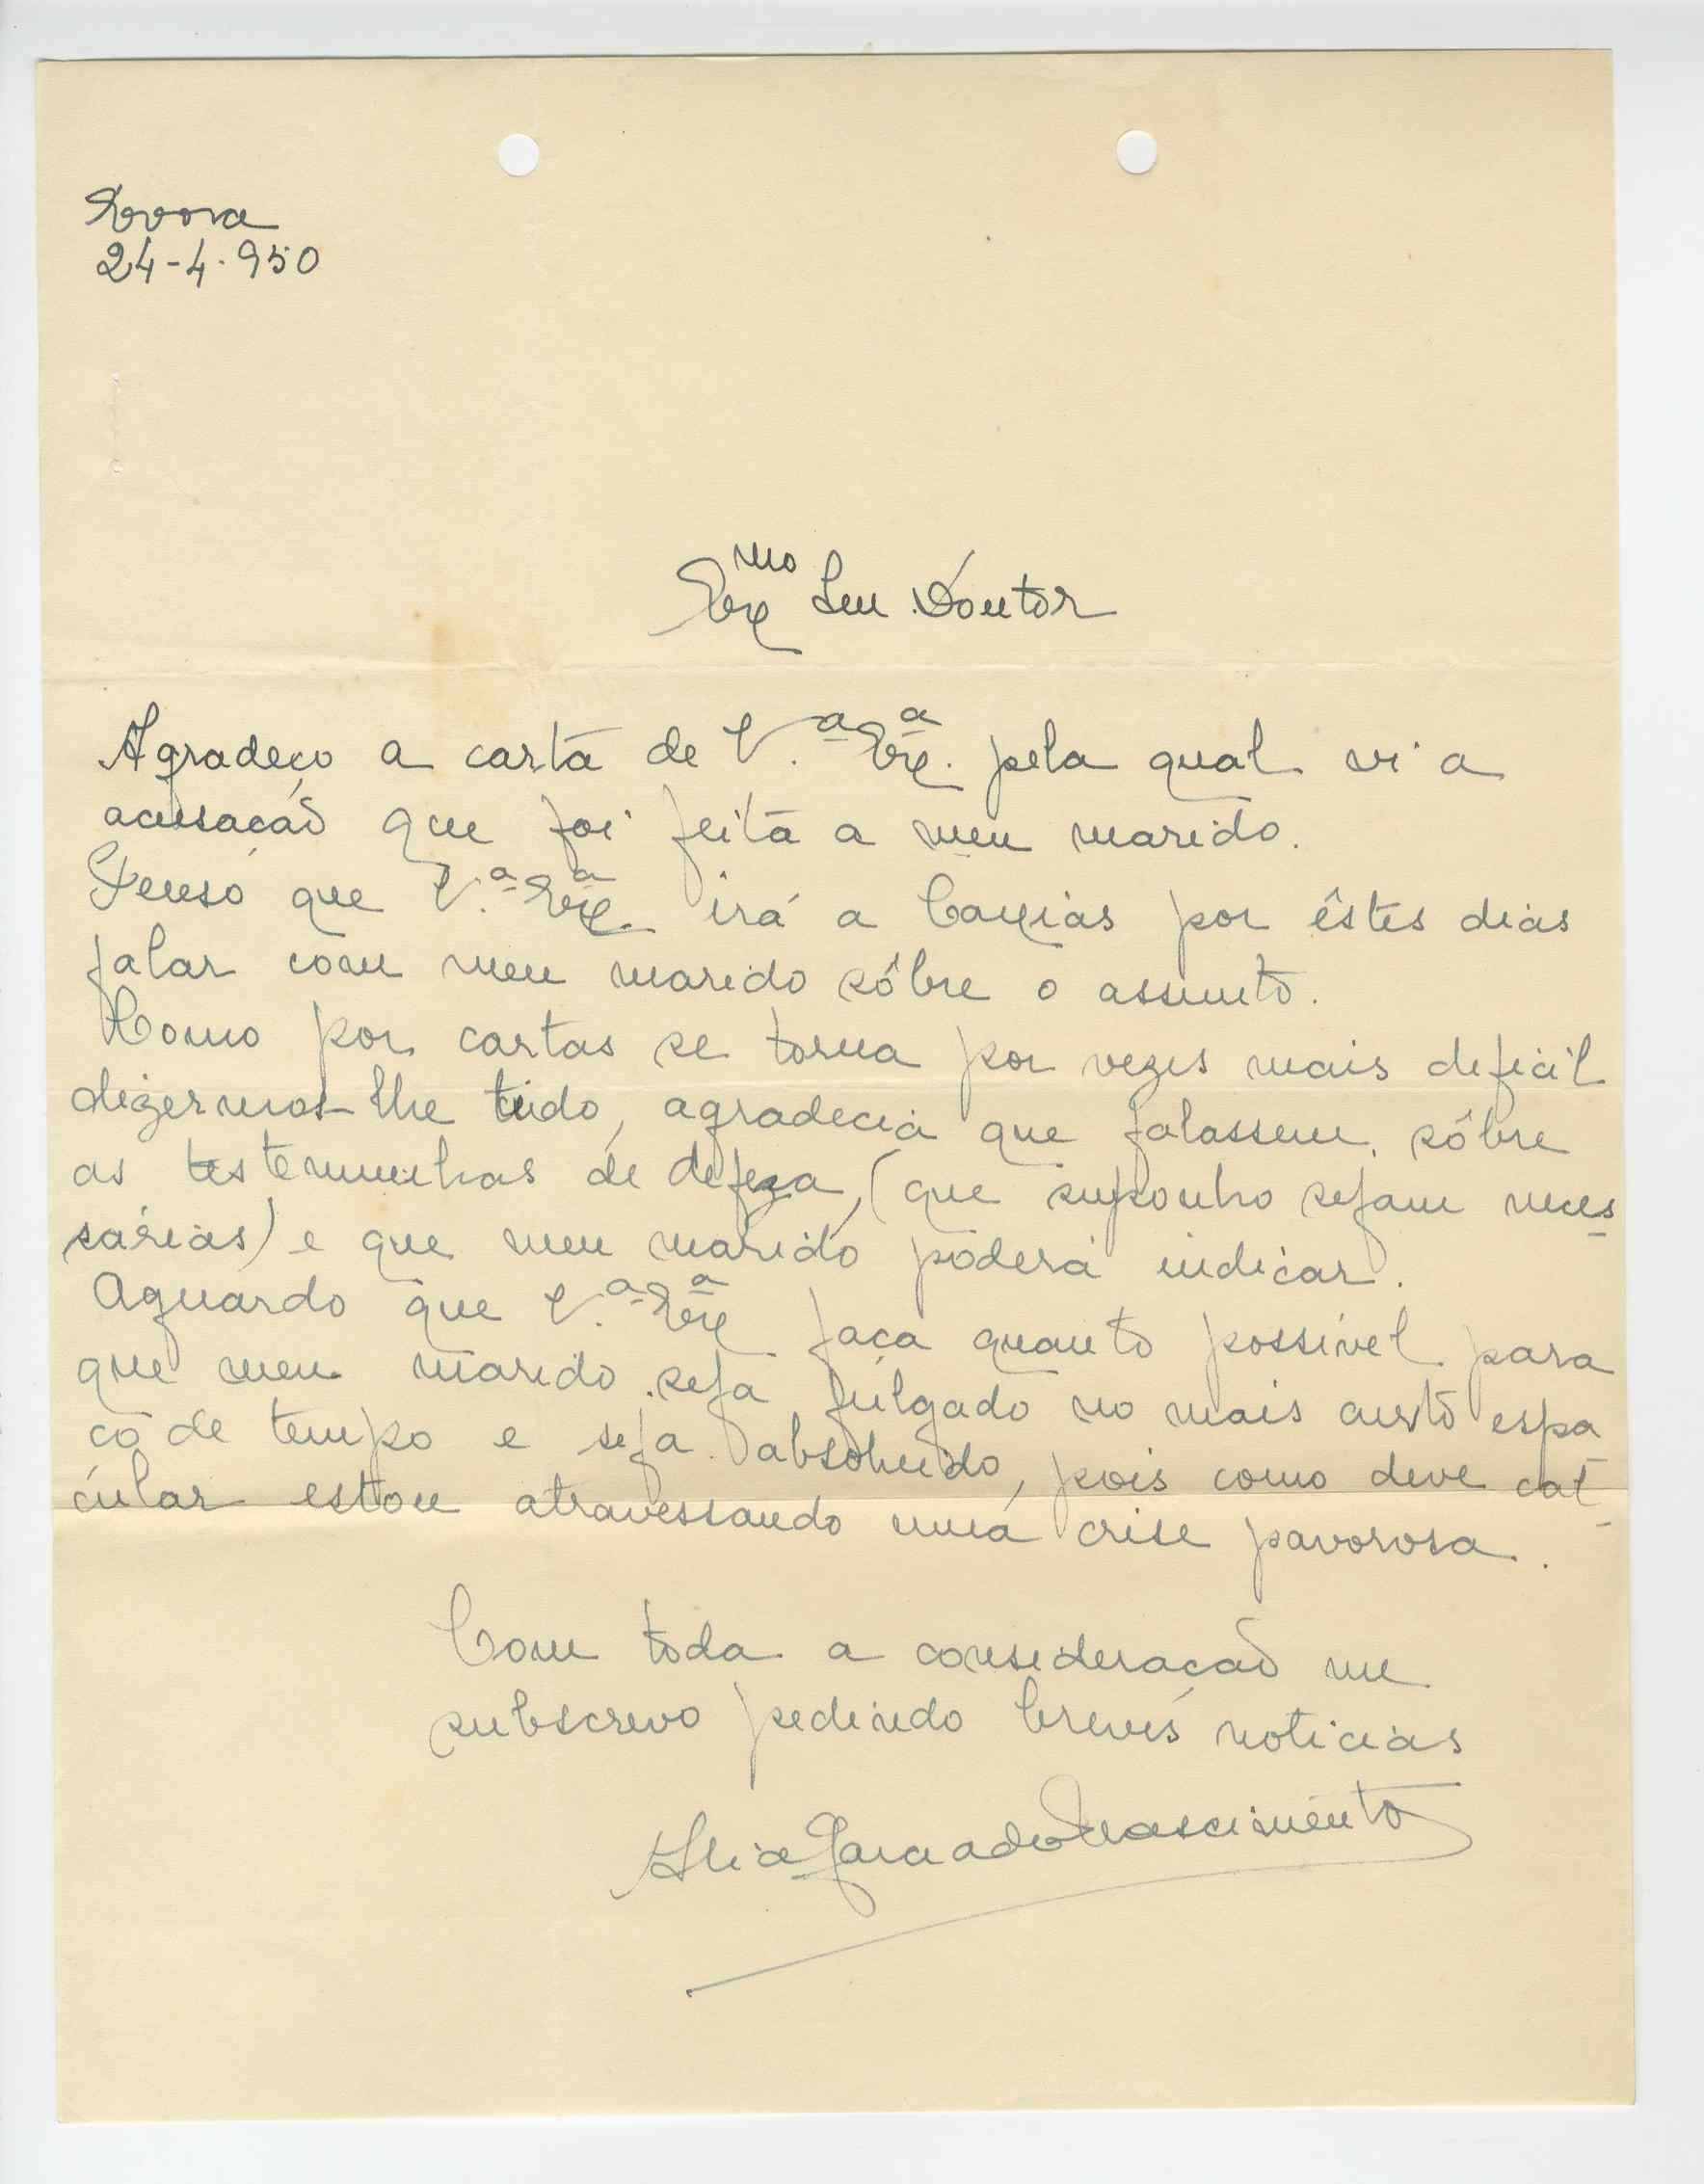 Evora
24-4-950
Exmo Snr Doutor
Agradeço a carta de V.ª Exª. pela qual vi a
acusação que foi feita a meu marido.
Penso que V.ª Exª. irá a Caxias por êstes dias
falar com meu marido sôbre o assunto.
Como por cartas se torna por vezes mais deficil
dizermos-lhe tudo, agradecia que falassem sôbre
as testemunhas de defeza, (que suponho sejam neces
sárias) e que meu marido poderá indicar.
Aguardo que V.ª Exª faça quanto possível para
que meu marido seja julgado no mais curto espa
ço de tempo e seja absolvido, pois como deve cal-
cular estou atravessando uma crise pavorosa.
Com toda a consideração me
subscrevo pedindo breves noticias
do Nascimento